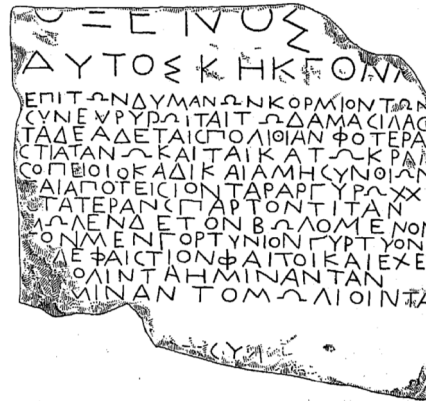 ΟΞΕΙΝΟΣ
ΑΥΤΟΣΚΗΚΓΟΝ
ΕΠΙΤΩΝΔΥΜΑΝΩΝΚΟΡΜΙΟΝΤΩΝ
CΥΝΕΥΡΥΡΩΙΤΑΙΤΩΔΑΜΑCΙΛΑC
ΤΑΔΕΑΔΕΤΑΙCΠΟΛΙΘΙΑΝΦΟΤΕΡΑ
CΤΙΑΤΑΝΩΚΑΙΤΑΙΚΑΤΩΚΡΑΙ
CΟΠΕΙΟΙΟΚΑΔΙΚΑΙΑΜΗCΥΝΘΙΩΝ
ΑΙΑΠΟΤΕΙCΙΟΝΤΑΡΑΡΓΥΡΩΧΧ
ΤΑΤΕΡΑΝCΠΑΡΤΟΝΤΙΤΑΝ
ΛΩΛΕΝΔΕΤΟΝΒΩΛΟΜΕΝΟΝ
ΤΟΝΜΕΝΓΟΡΤΥΝΙΟΝΓΥΡΤΥΟΝ
ΔΕΦΑΙCΤΙΟΝΦΑΙΤΟΙΚΑΙΕΧΕ
ΟΛΙΝΤΑΗΜΙΝΑΝΤΑΝ
ΜΙΝΑΝΤΟΜΩΛΙΟΙΝΤΑ